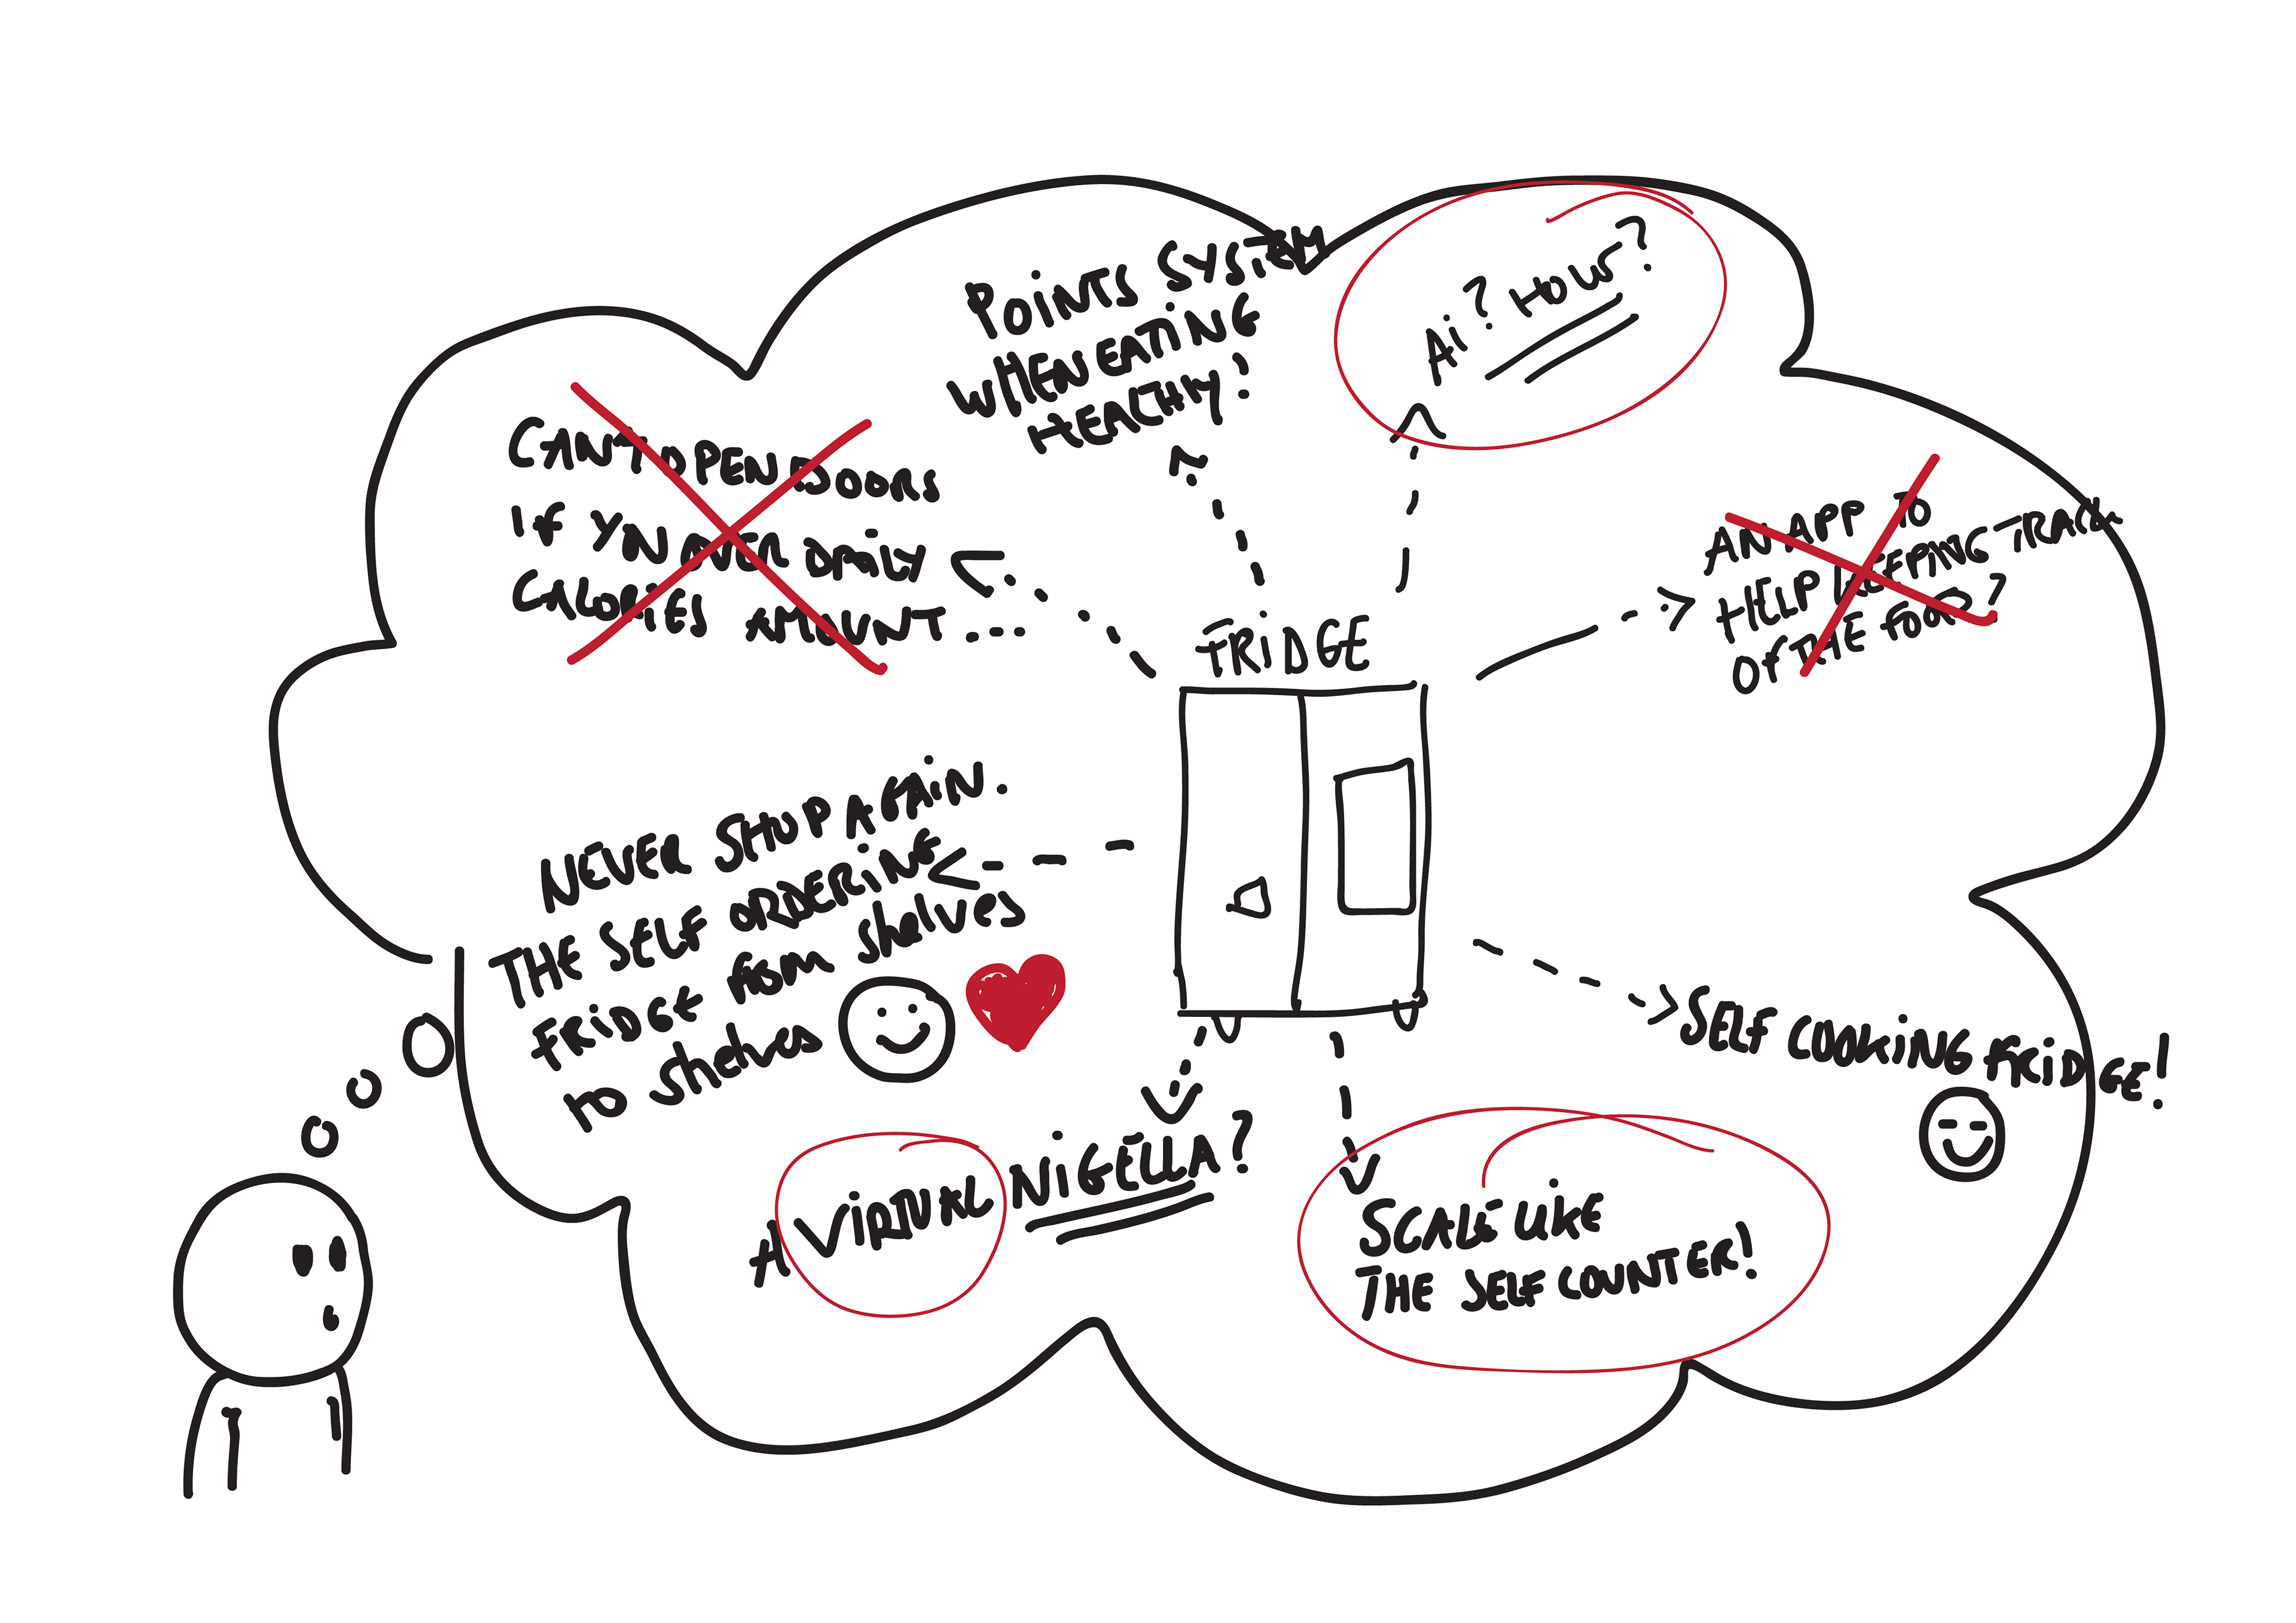 POINTS SYSTEM
WHEN EATING
HEALTHY?
Ai? HOW?
CAN'T OPEN DOORS
IF YN OVER DAILY
CALORIES AMOUNT...
AN APP TO
HELP KEEPING TRACK
OF THE FOOD?
FRIDGE
NEVER SHOP AGAIN.
THE SELF ORDERING
FRIDGE FROM shelves
TO shelves
SELF COOKING FRIDGE!
A VIRTUAL NIGELLA?
SCALE LIKE
THE SELF COUNTER!